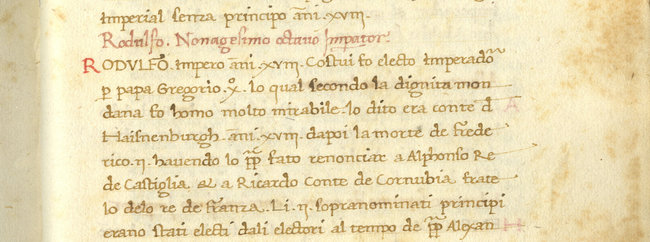 imperial senza principo ãni .xviii.
Rodulfo. Nonagesimo octauo Impator.
RODVLFO. impero ãni .xviii. Costui fo electo imperadõr
p papa Gregorio .x. lo qual secondo la dignita mon
dana fo homo molto mirabile. lo dito era conte d
Haisnenburgh. ãni .xviii. dapoi la morte de frede
rico .ii. hauendo lo pp̃ fato renonciar a Alphonso Re
de Castiglia & a Ricardo Conte de Cornubia frate
lo delo re de franza. Li .ii. sopranominati principi
erano stati electi dali electori al tempo de pp̃ Alexan